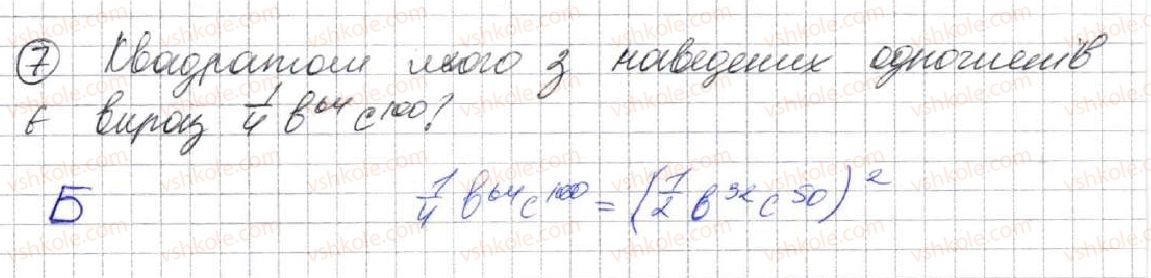 7 Квадратом якого з наведених одночленів
є вираз 1/4 b^64 c^100?
Б 1/4 b^64 c^100 = (1/2 b^32 c^50)^2